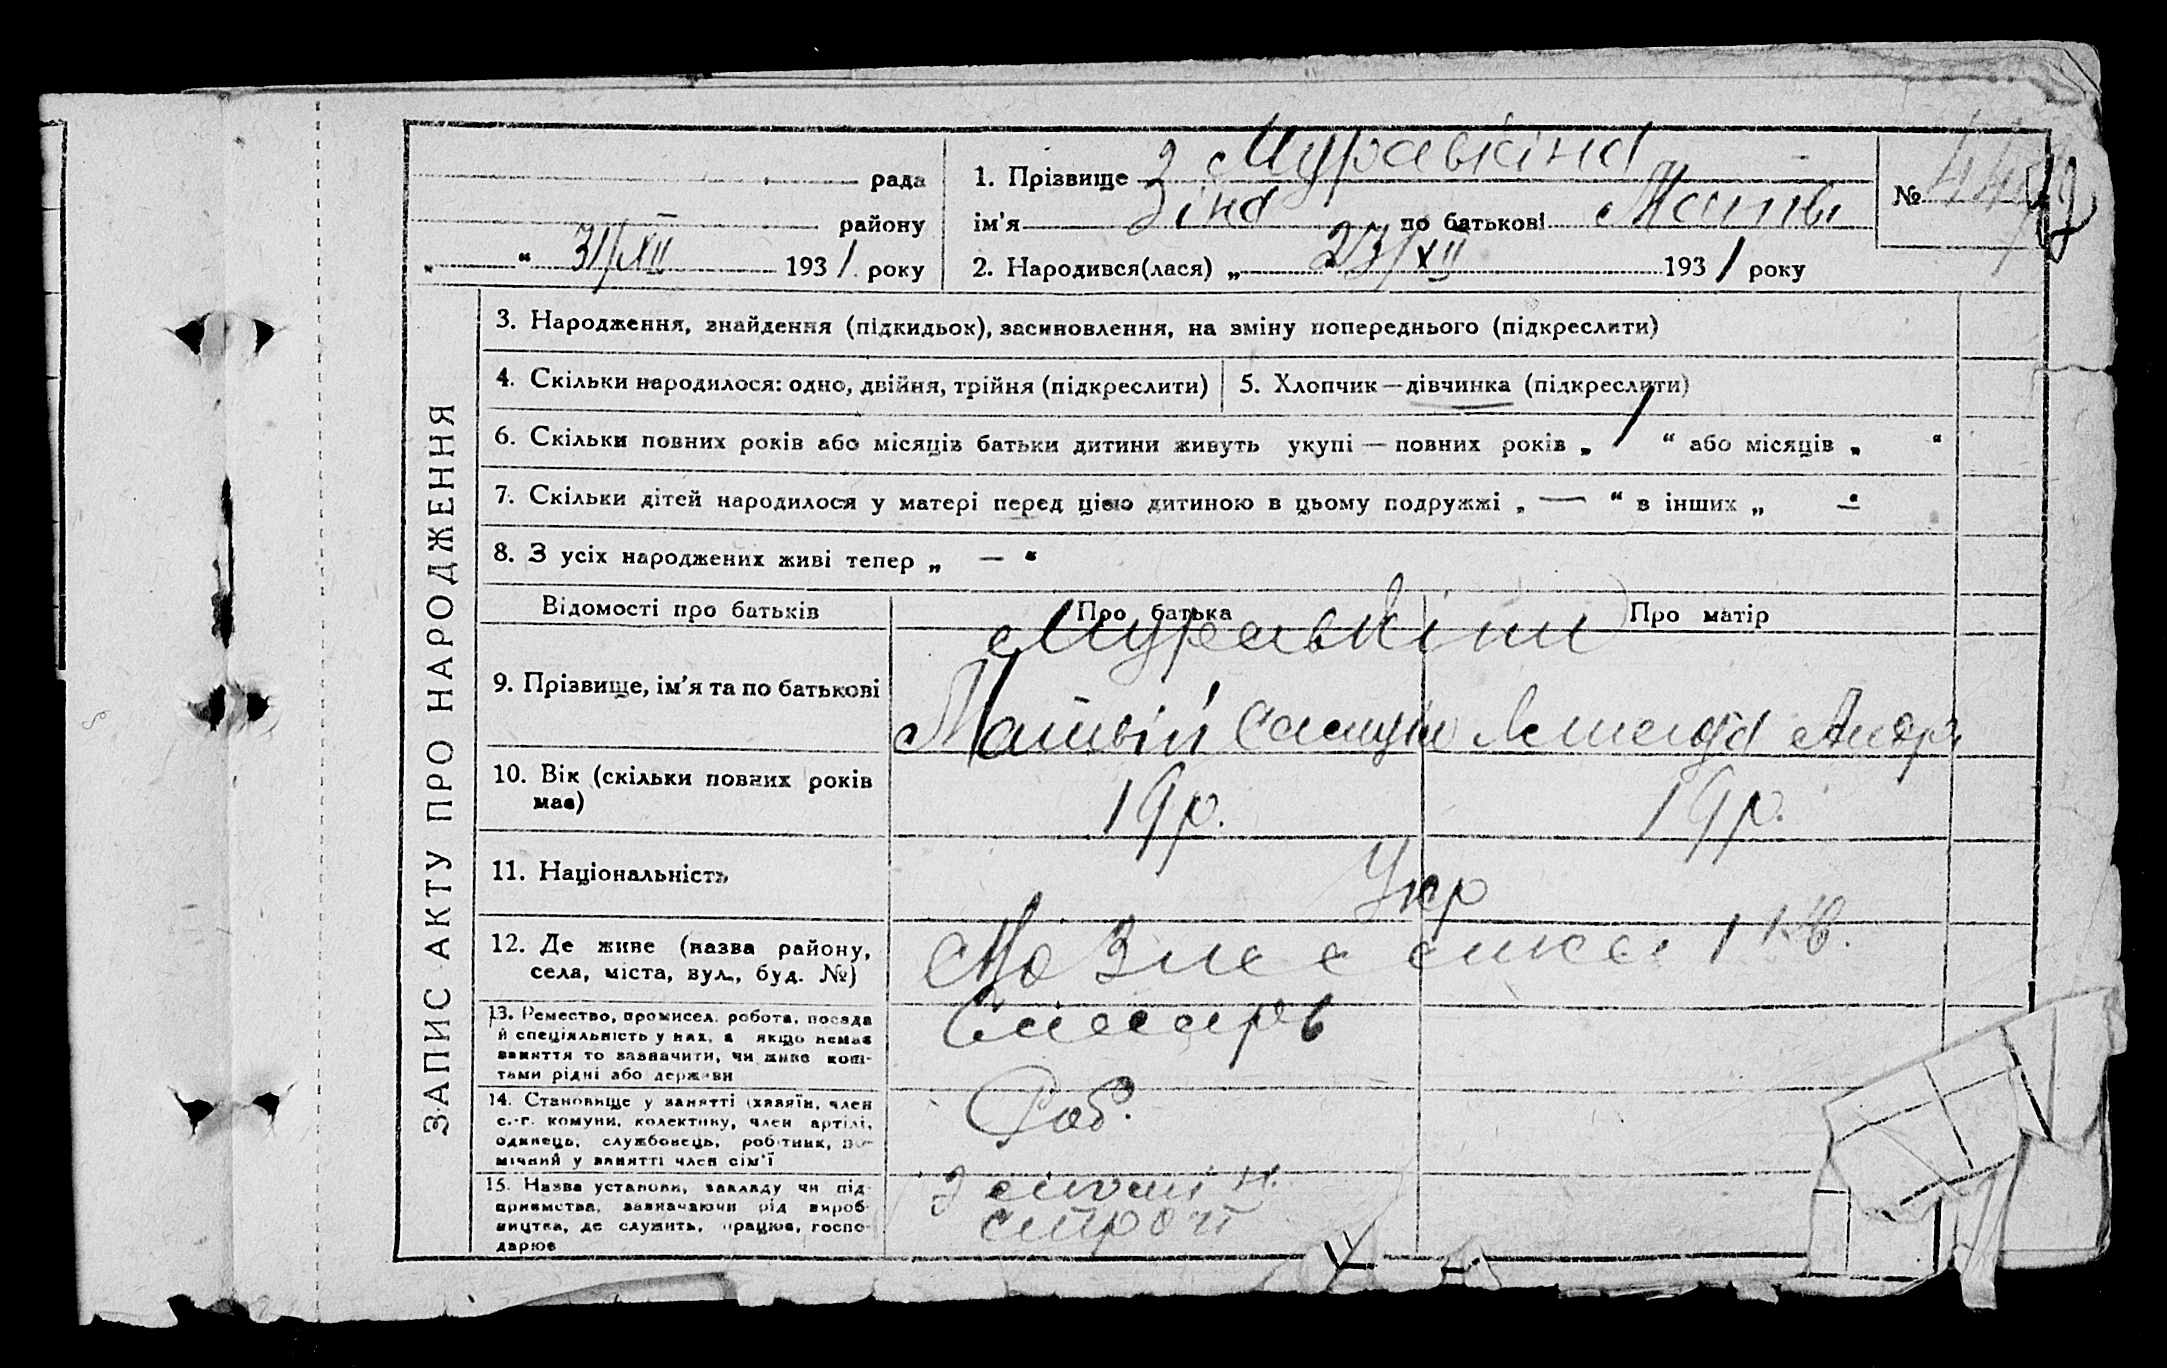 рада
району
„ “ 31/XII 1931 року
1. Прізвище Муравкіна
ім'я Зіна по батькові Матв
2. Народився(лася) „ 23/XII 1931 року
№
ЗАПИС АКТУ ПРО НАРОДЖЕННЯ
3. Народження, знайдення (підкидьок), засиновлення, на зміну попереднього (підкреслити)
4. Скільки народилося: одно, двійня, трійня (підкреслити)
5. Хлопчик — дівчинка (підкреслити)
6. Скільки повних років або місяців батьки дитини живуть укупі — повних років „ 1 “ або місяців „ “
7. Скільки дітей народилося у матері перед цією дитиною в цьому подружжі „ — “ в інших „ — “
8. З усіх народжених живі тепер „ — “
Відомості про батьків
Про батька
Про матір
Муравкіни
9. Прізвище, ім'я та по батькові
Матвій
Андр
10. Вік (скільки повних років
має)
19 р.
19 р.
11. Національність
Укр
12. Де живе (назва району,
села, міста, вул., буд. №)
13. Ремество, промисел, робота, посада
й спеціяльність у них, а якщо немає
заняття то зазначити, чи живе кош-
тами рідні або держави
Слюсарь
14. Становище у занятті (хазяїн, член
с.-г. комуни, колективу, член артілі,
одинець, службовець, робітник, по-
мічний у занятті член сім'ї
Роб.
15. Назва установи, закладу чи під-
приємства, зазначаючи рід вироб-
ництва, де служить, працює, госпо-
дарює